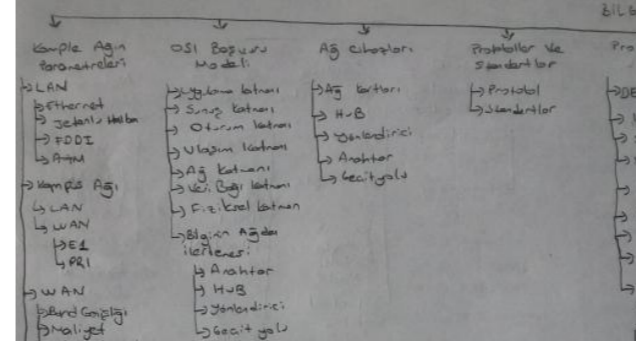 BİL
Kample Ağın
Parametreleri
LAN
Ethernet
Jetonlu Halka
FDDI
ATM
Kampüs Ağı
LAN
WAN
E1
PRI
WAN
Band Genişliği
Maliyet
OSI Başvuru
Modeli
Uygulama katmanı
Sunuş Katmanı
Oturum katmanı
Ulaşım katmanı
Ağ Katmanı
Veri Bağı katmanı
Fiziksel katman
Bilginin Ağda
ilerlemesi
Anahtar
HUB
Yönlendirici
Gecit yolu
Ağ Cihazları
Ağ kartları
HUB
Yönlendirici
Anahtar
Gecit yolu
Protokoller ve
Standartlar
Protokol
Standartlar
Pro
DE